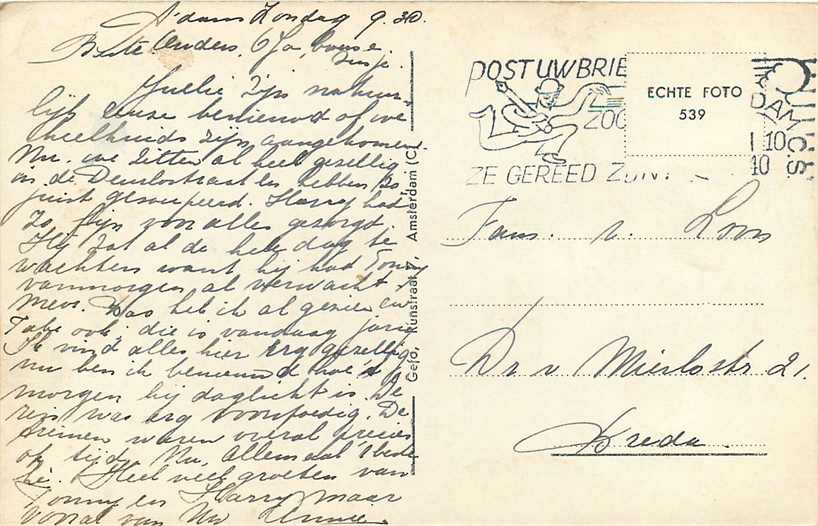 A'dam Zondag 9.30.
Beste Ouders, Oja, broers en
zusje.
Jullie zijn natuur-
lijk benieuwd of we
heelhuids zijn aangekomen.
Nu, we zitten al heel gezellig
in de en hebben zo
juist gesoupeerd. Harry had
zo fijn voor alles gezorgd.
Hij zat al de hele dag te
wachten want hij had Tonny
vanmorgen al verwacht.
heb ik al gezien en
ook, die is vandaag jarig
Ik vind alles hier erg gezellig
nu ben ik benieuwd hoe 't
morgen bij daglicht is. De
reis was erg voorspoedig. De
treinen waren overal precies
op tijd. Nu, allemaal
Heel veel groeten van
Tonny en Harry maar
vooral van Uw
Gefo, Runstraat, Amsterdam (C)
POST UW BRIE
ZOO
ZE GEREED ZIJN!
ECHTE FOTO
539
DAM
10
40
Fam. v. Loon
Dr v Mierlostr 21.
Breda.